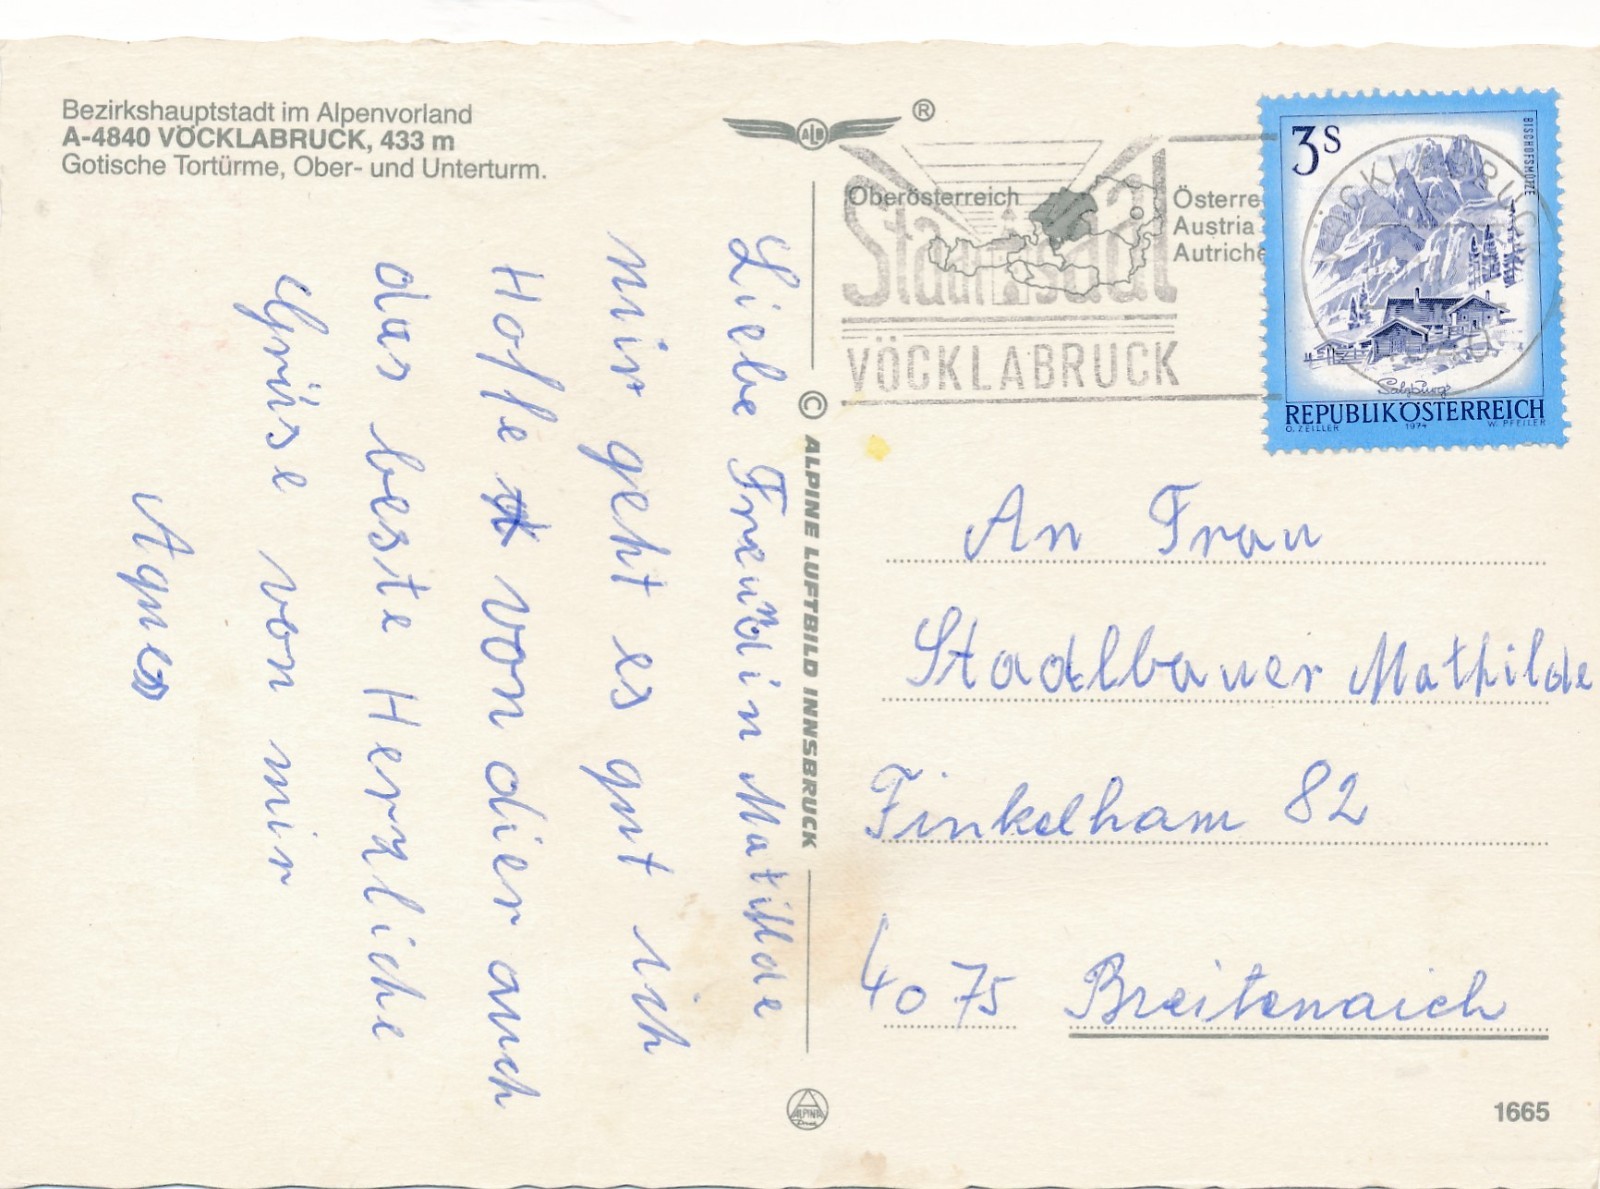 Bezirkshauptstadt im Alpenvorland
A-4840 VÖCKLABRUCK, 433 m
Gotische Tortürme, Ober- und Unterturm.
Liebe Freundin Matilde
mir geht es gut ich
Hoffe von dier auch
das beste Herzliche
Grüse von mir
Agnes
© ALPINE LUFTBILD INNSBRUCK
ALPINA
ALB
®
Oberösterreich
Österre
Austria
Autriche
Stadtsaal
VÖCKLABRUCK
3S
BISCHOFSMÜTZE
VÖCKLABRUCK
Salzburg
REPUBLIK ÖSTERREICH
O. ZEILLER 1974 W. PFEILER
An Frau
Stadlbauer Mathilde
Finkelham 82
4075 Breitenaich
1665